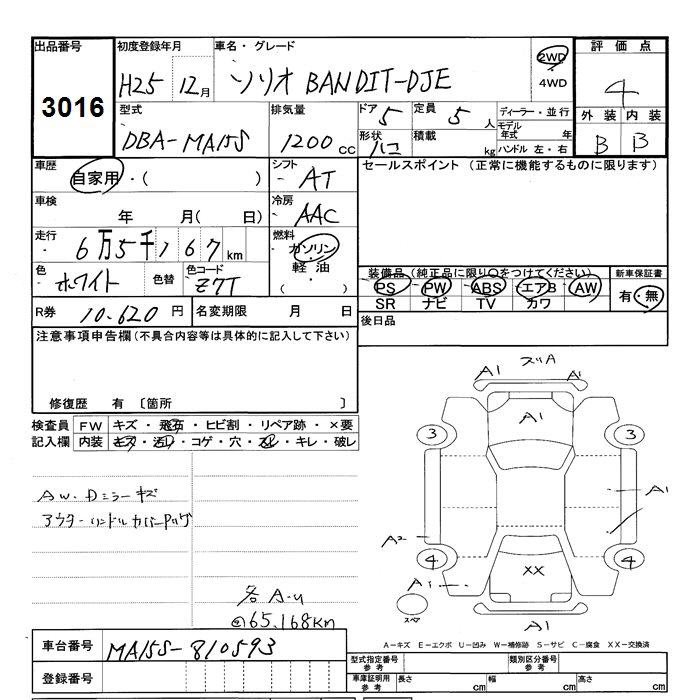 出品番号 初度登録年月 車名・グレード 評価点
3016 H25 12月 ソリオ BANDIT-DJE 2WD 4WD 4
型式 排気量 ドア 5 定員 5人 ディーラー・並行 外装 内装
DBA-MA15S 1200cc 形状 ハコ 積載 kg モデル年式 年 B B
ハンドル 左・右
車歴 自家用・( ) シフト AT セールスポイント (正常に機能するものに限ります)
車検 年 月( 日) 冷房 AAC
走行 6万5千167km 燃料 ガソリン 軽油 ・( )
色 ホワイト 色替 色コード Z7T
装備品(純正品に限り○をつけてください) 新車保証書
PS PW ABS エアB AW 有・無
SR ナビ TV カワ
R券 10.620円 名変期限 月 日 後日品
注意事項申告欄(不具合内容等は具体的に記入して下さい)
修復歴 有 〔箇所 〕
検査員 FW キズ・飛石・ヒビ割・リペア跡・×要
記入欄 内装 キズ・汚レ・コゲ・穴・スレ・キレ・破レ
AW.Dミラーキズ
アウターハンドルカバーPタッグ
各A.u
@65.168km
A1 スリA A1
A1
3 3
A1
A2
4 4
A1 XX
スペア A1
A-キズ E-エクボ U-凹み W-補修跡 S-サビ C-腐食 XX-交換済
車台番号 MA15S-810593
登録番号
型式指定番号 参考 類別区分番号 参考
車庫証明用 参考 長さ cm 幅 cm 高さ cm